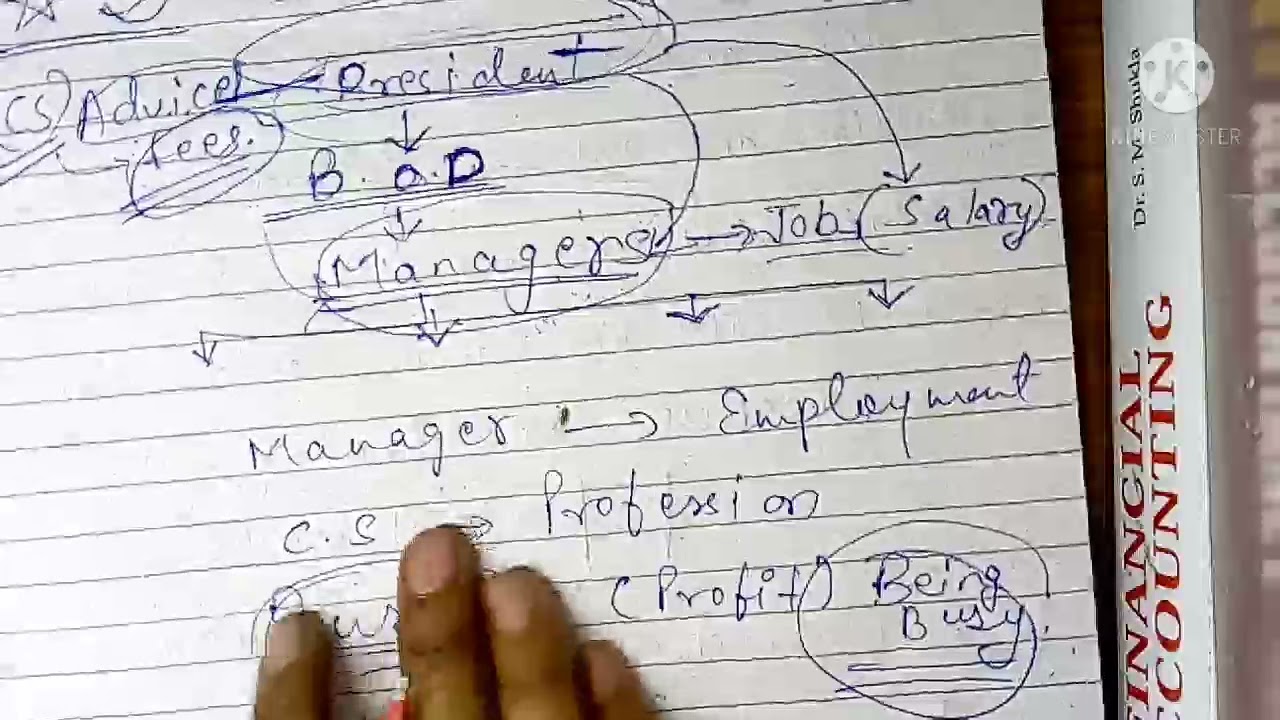 (CS) Advice President
Fees.
B.O.D
Managers → Job (Salary)
Manager → Employment
C.S → Profession
(Profit) Being
Busy.
Dr. S. M. Shukla
FINANCIAL
ACCOUNTING
KINEMASTER